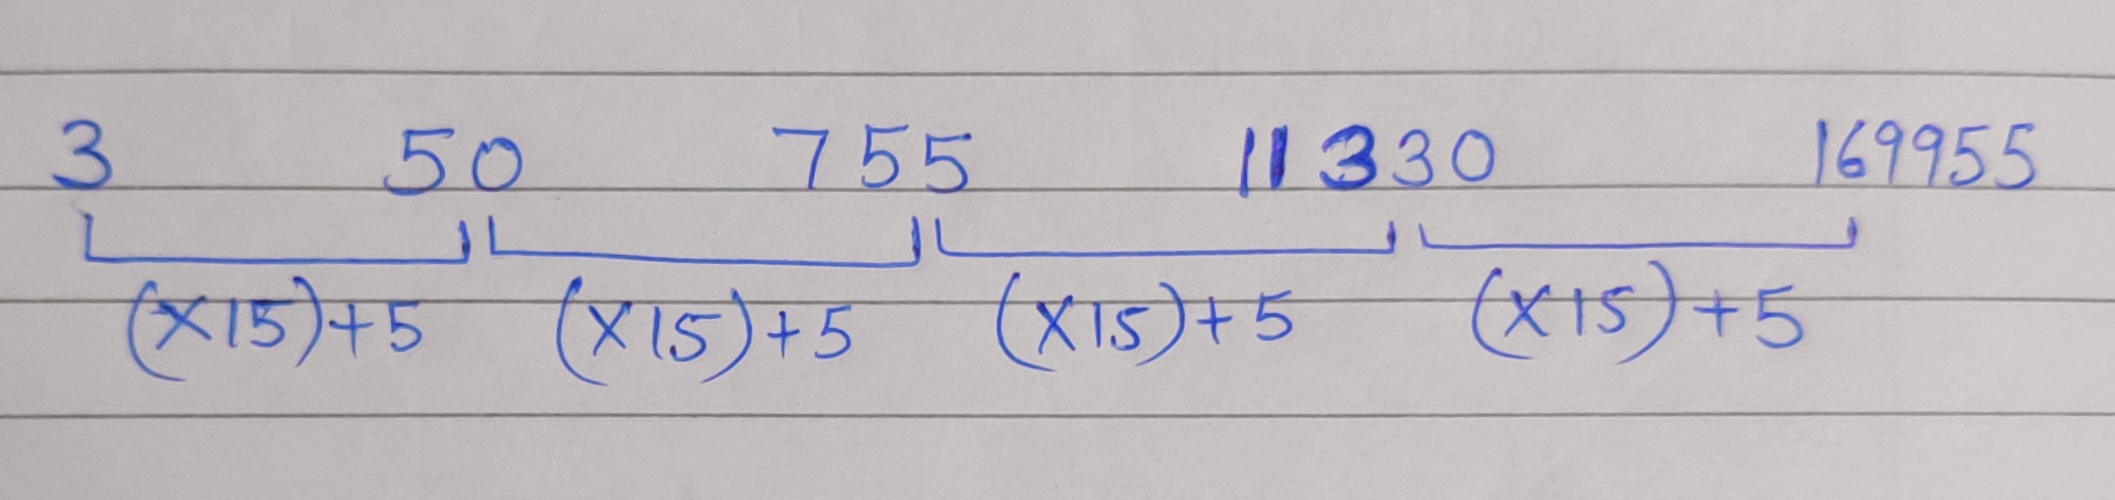 3 50 755 11330 169955
(×15)+5 (×15)+5 (×15)+5 (×15)+5